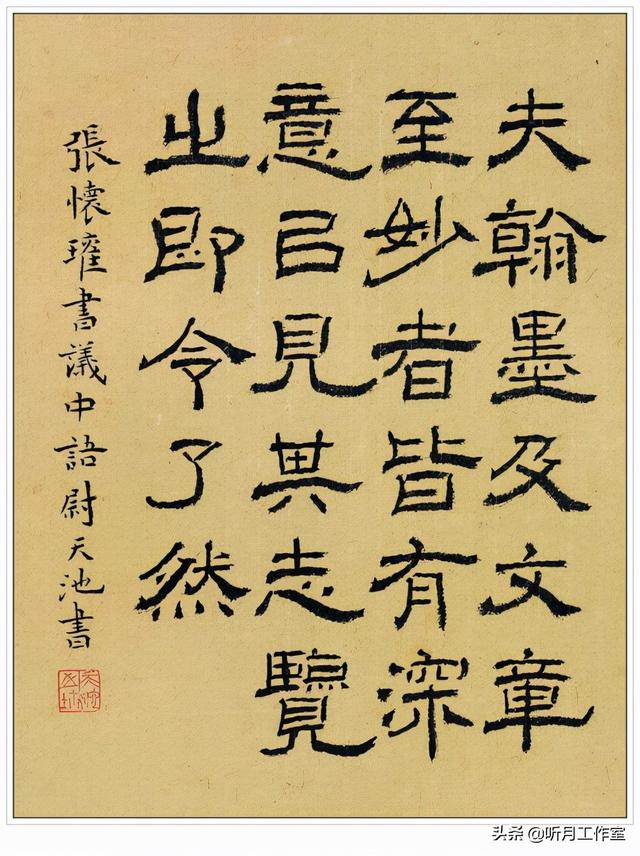 夫翰墨及文章
至妙者皆有深
意㠯見其志覽
之即令了然
張懷瓘書議中語尉天池書
头条 @听月工作室